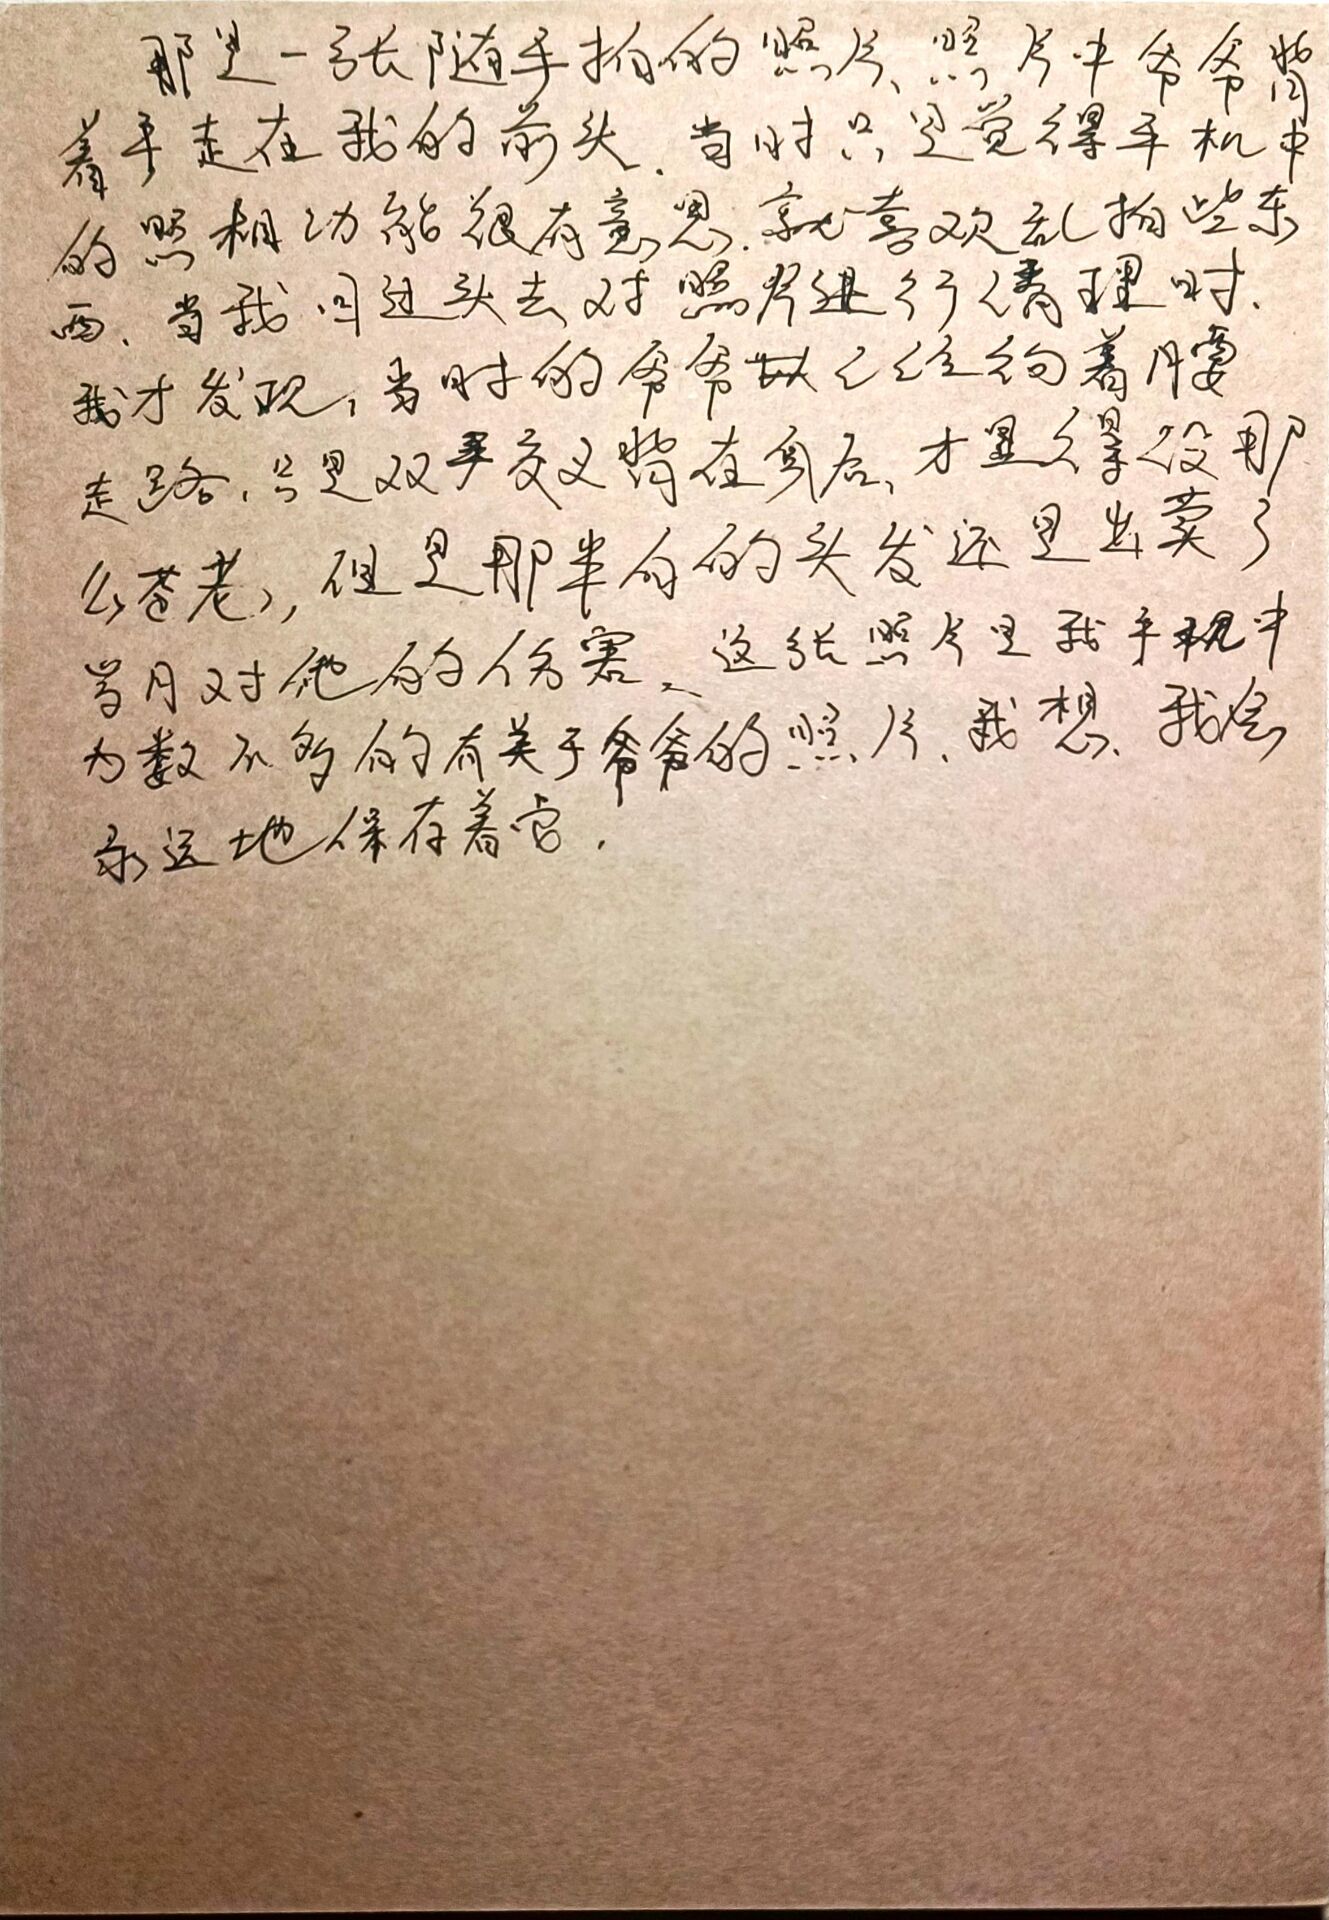 那是一张随手拍的照片、照片中爷爷背
着手走在我的前头.当时只是觉得手机中
的照相功能很有意思.就喜欢乱拍些东
西、当我回过头去对照片进行清理时.
我才发现,当时的爷爷已经佝着腰
走路、只是双手交叉背在身后、才显得没那
么苍老,但是那半白的头发还是出卖了
岁月对他的伤害、这张照片是我手机中
为数不多的有关于爷爷的照片、我想、我会
永远地保存着它.